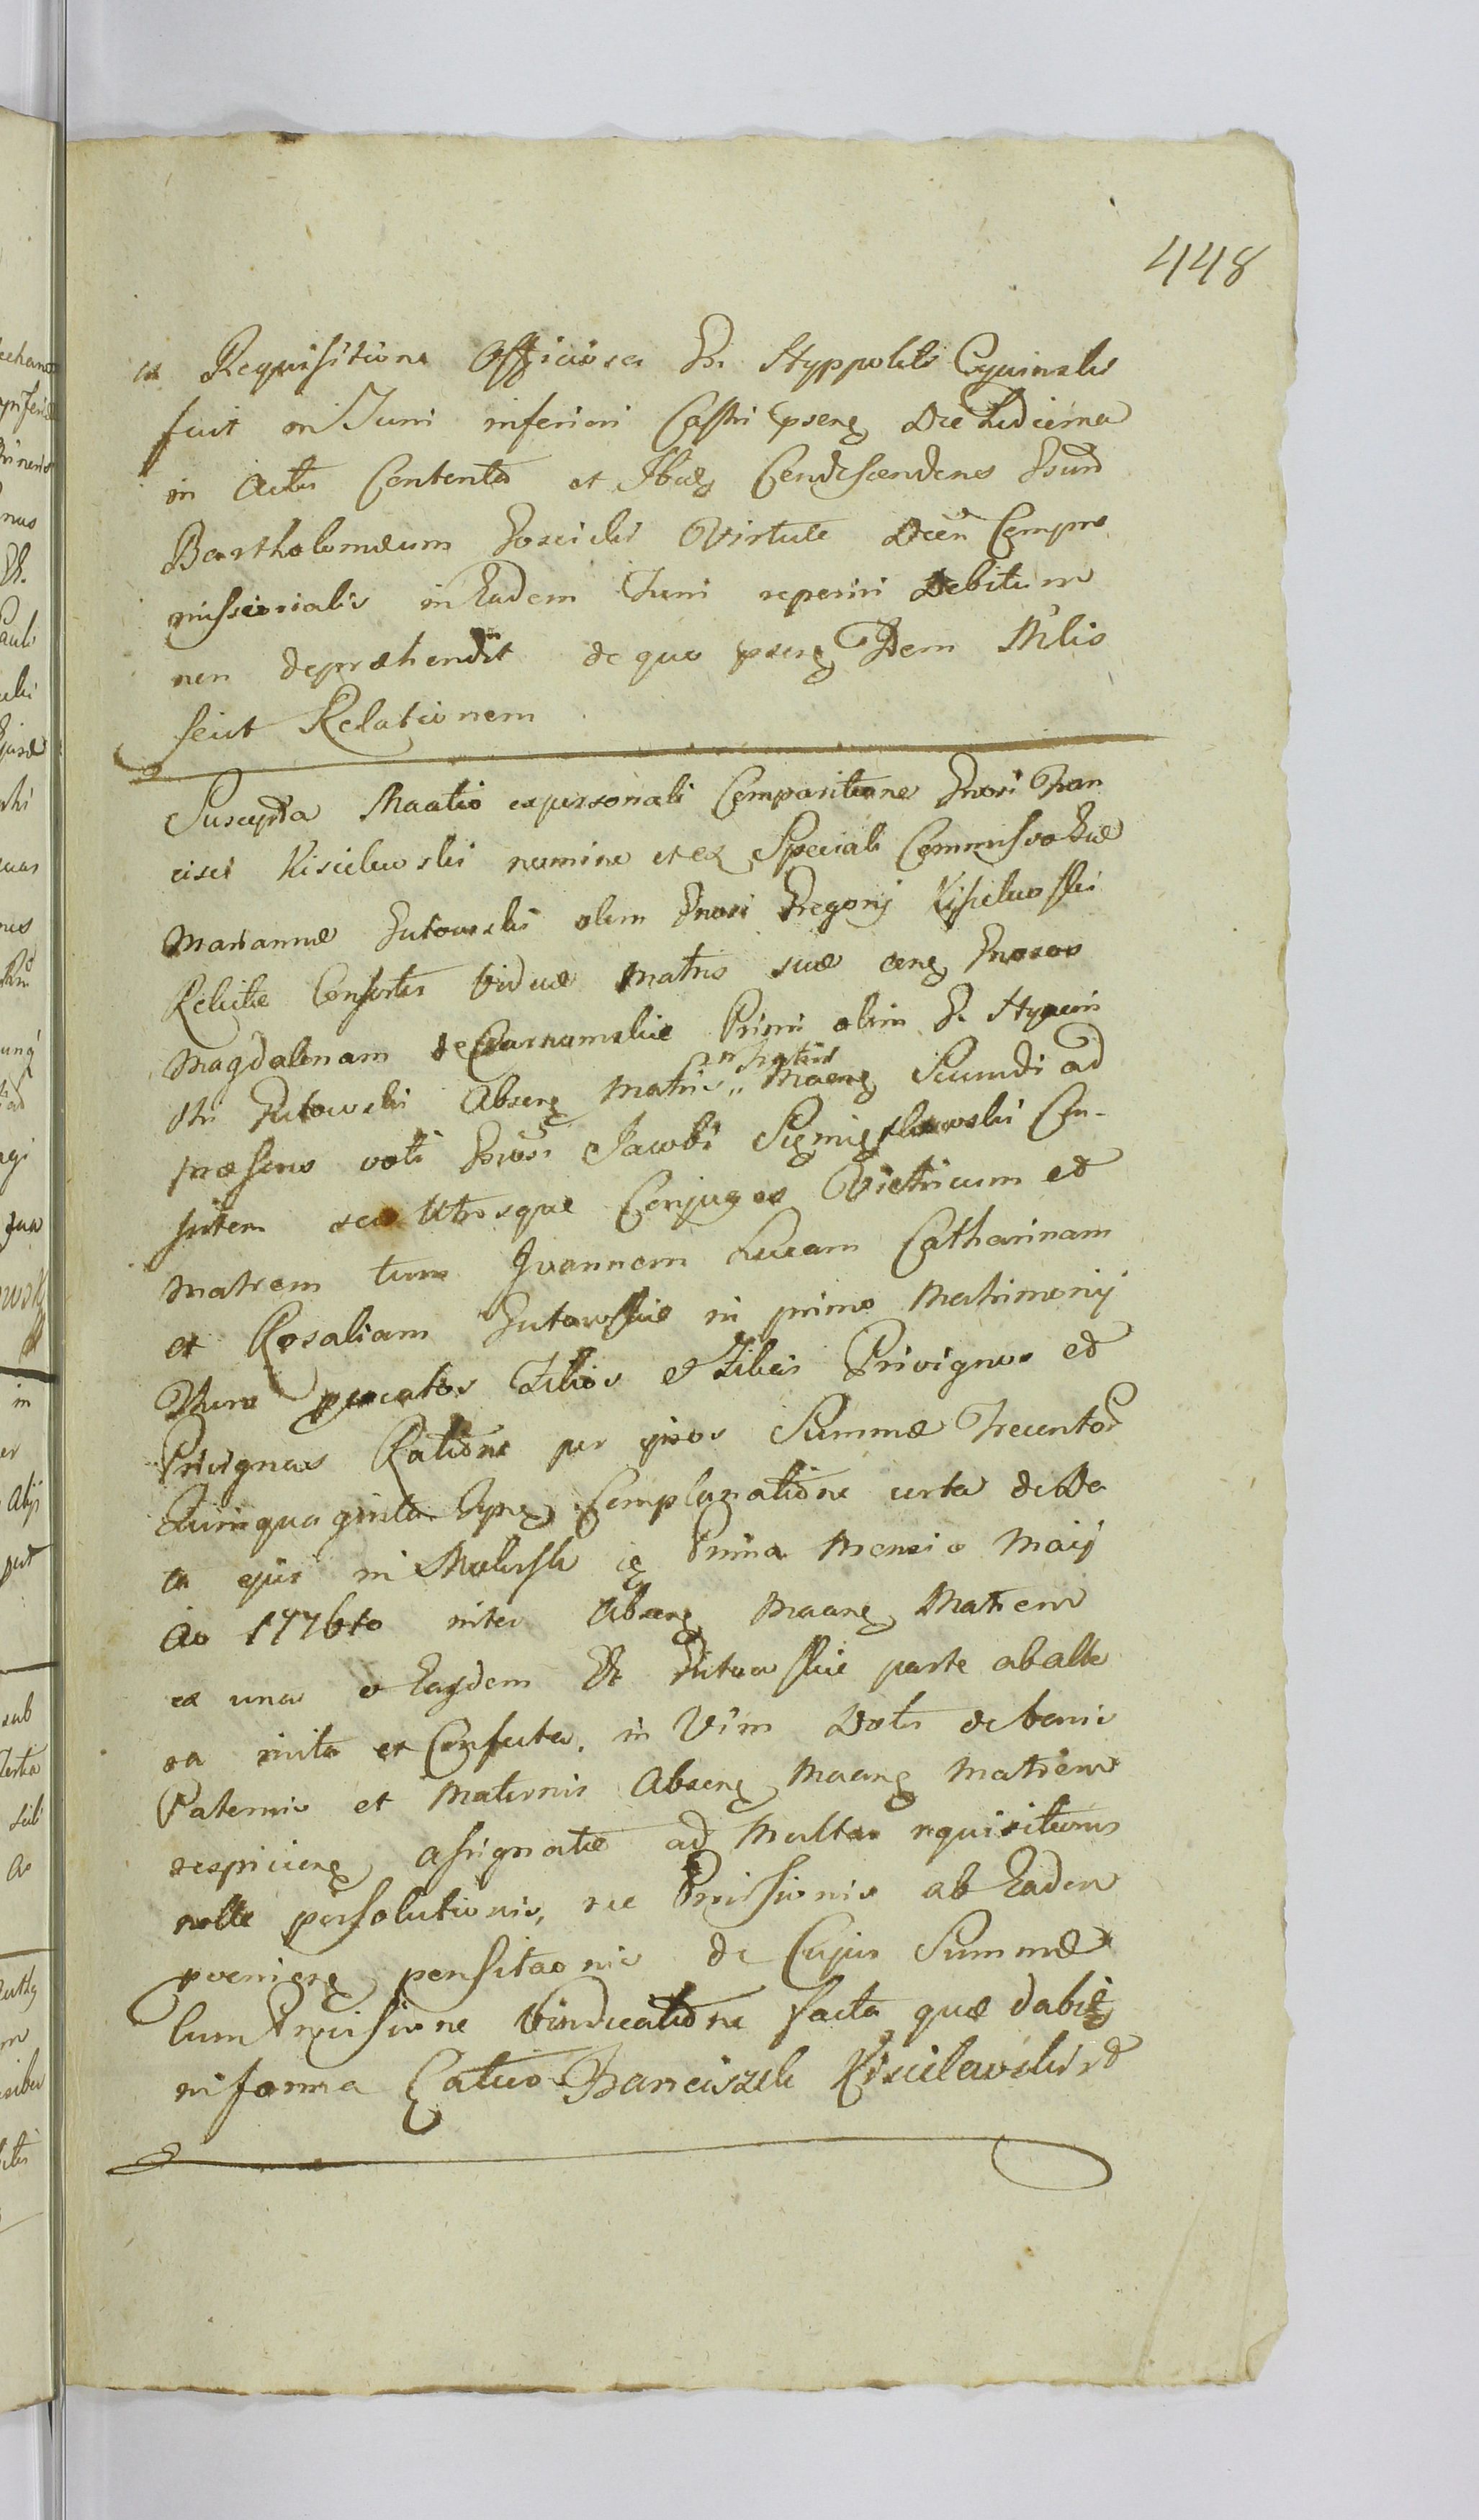 448
ex Requisitione Officiosa Gsi Hyppoliti Cywinski
fuit in Turri inferiori Castri pseng Die Hodierna
in Actu Contenta et Ibidem Condescendens Gsum
Bartholomæum Virtute Decti Compro
missorialis in Eadem Turri reperiri Debitum
non depræhendit de quo pseng Idem Mlis
fecit Relationem
Suscepta Maatio ex personali Comparitione Gnosi Fran
cisci Kisielewski nomine et ex Speciali Commisso Gæ
Mariannæ Gutowski olim Gnosi Gregorij Kisielewski
Relictæ Consortis Viduæ Matris suæ Gnosos
Magdalenam de Primi olim G. Hyacin
thi Gutowski Abseng Matris Maeng Secundi ad
præsens voti Gnosi Jacobi Con-
sortem seu Utrosque Conjuges Victricum et
Matrem tum Joannem Lucam Catharinam
et Rosaliam Gutowskie in primo Matrimonij
Thoro pcreatos Filios et Filias Privignos et
Privignas Ratione per ipsos Summæ Trecentor
Quinquaginta Complanatione certa de Da
ta ejus in Prima Mensis Maij
Ao 1776to inter Abseng Maang Matrem
ex una et Eagdem GG Gutowskie parte ab alte
ra inita et Confecta. in Vim Dotis de bonis
Paternis et Maternis Abseng Maang Matrem
respicieng assignatæ ad Multas requisitiones
nolle persolutionis, nec Provisionis ab Eadem
pvenieng pensitaonis de Cujus Summæ
Cum Provisione Vindicatione facta quæ dabit
in forma Franciszek Kisielewski